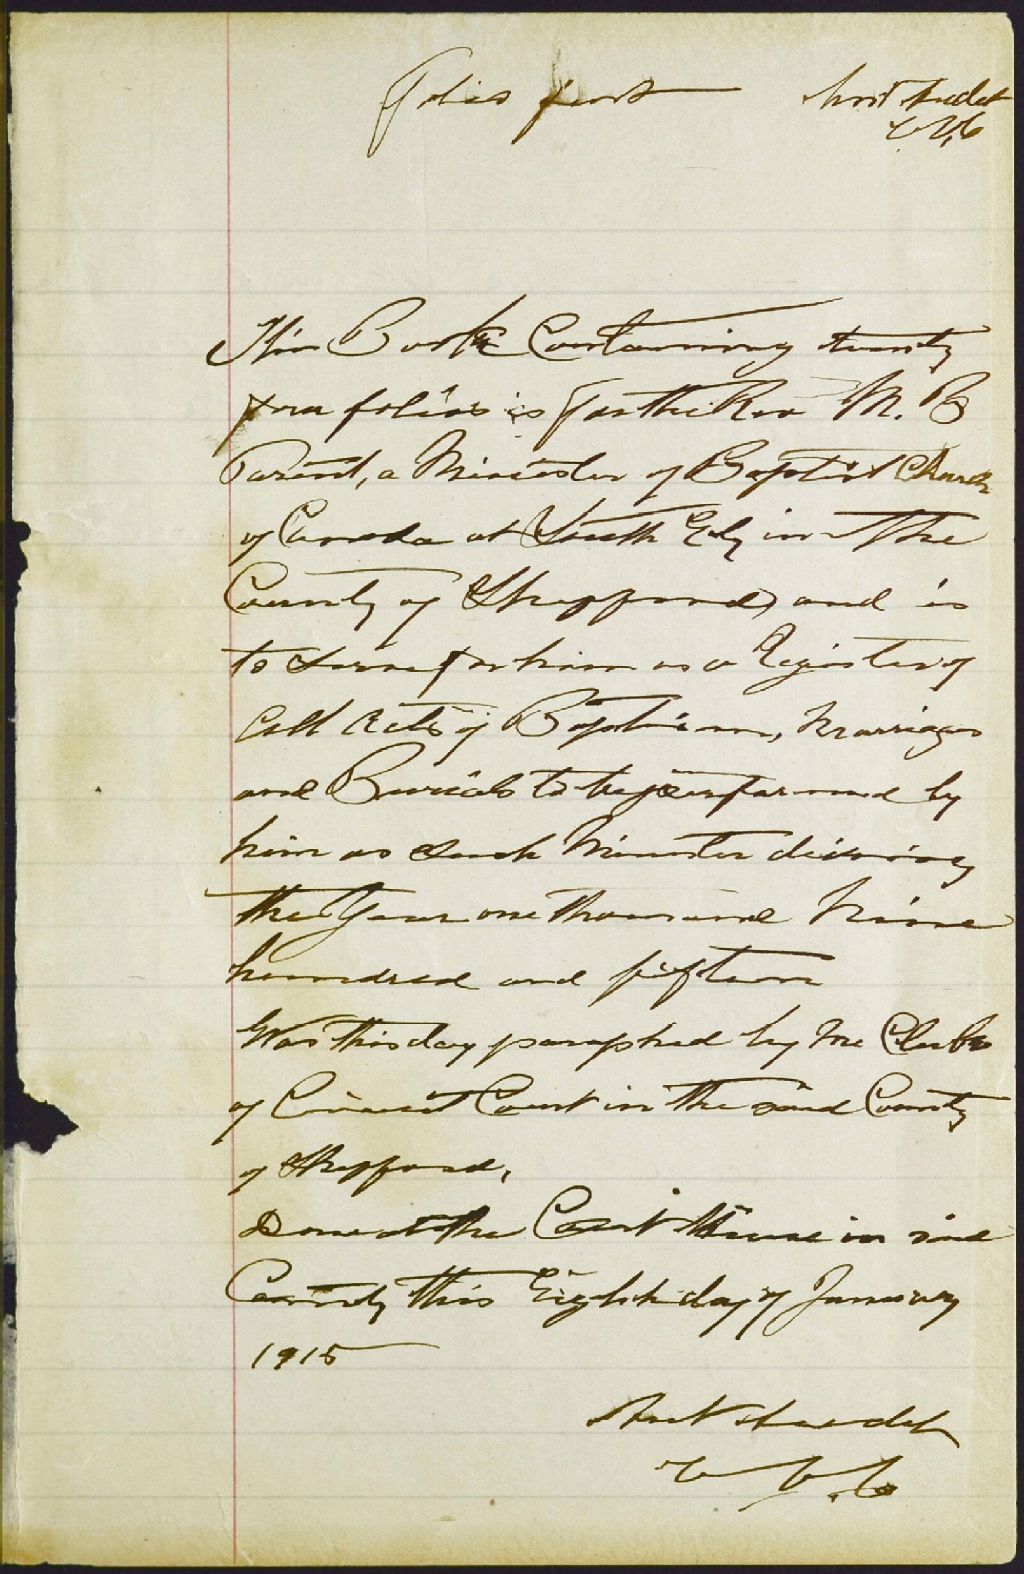 Folio first
This Book Containing twenty
four folios is for the Rev M. B
Parent, a Minister of Baptist Church
of Canada at South Ely in the
County of Shefford, and is
to serve for him as a Register of
all Acts of Baptism, Marriages
and Burials to be performed by
him as such Minister during
the Year one thousand Nine
hundred and fifteen
Was this day paraphed by me Clerk
of Circuit Court in the said County
of Shefford,
Done at the Court House in said
County this Eighth day of January
1915